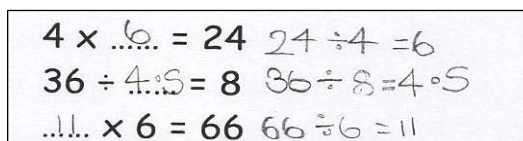 4 × 6 = 24 24 ÷ 4 = 6
36 ÷ 4.5 = 8 36 ÷ 8 = 4.5
11 × 6 = 66 66 ÷ 6 = 11